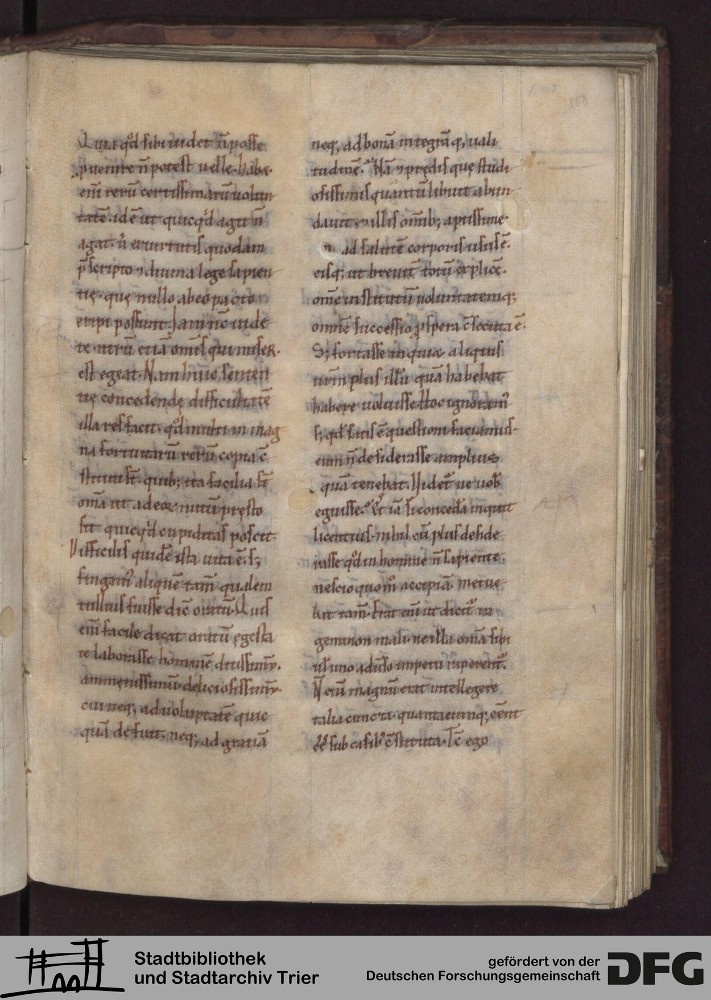 Quia qd sibi uidet n̄ posse
puenire n̄ potest uelle. habe
eni rerū certissimarū uolun
tatē. id ē ut quicqd agit n̄
agat. n̄ ex uirtutis quodam
pscripto ⁊ diuina lege sapien
tię. que nullo ab eo pacto
eripi possunt. Iam nc uide
te utrū etiā omis qui miser
est egeat. Nam huic senten
tię concedendę difficultatē
illa res facit. qd multi in mag
na fortuitarū rerū copia c̄
stituti st. quib; ita facilia st
omia ut ad eoꝝ nutū presto
sit quicqd cupiditas poscit.
Difficilis quidē ista uita ē. s;
fingam aliquē tam̄ qualem
tullius fuisse dic oratū. Quis
eni facile dicat oratū egesta
te laborasse hominē ditissimū.
amenissimū deliciosissimū.
cui neq; ad uoluptatē quic
quā defuit. neq; ad gratiā
neq; ad bonā integrāq; uali
tudinē. Nā ⁊ predis quęstudi
osissimis quantū libuit abun
dauit. ⁊ illis omib; aptissime
ad salutē corporis usus ē.
eisq; ut breuit totū explicē.
ome institutū uoluntatemq;
omnē successio pspera csecuta ē
S; fortasse inquiꝝ aliquis
urm plus illū quā habebat
habere uoluisse. Hoc ignoram
s; qd satis ē questioni faciamus
eum n̄ desiderasse amplius
quā tenebat. Videt ne uob
eguisse. Et iā si concedā inquit
licentius. nihil eū plus deside
rasse qd in homine n̄ sapiente
nescio quom accipiā. metue
bat tam̄. Erat eni ut dicit in
genii non mali. ne illa omia sibi
uł uno aduso impetu riperent.
N eni magnū erat intellegere
talia cuncta. quantacumq; eent
ee sub casib; cstituta. Ic ego
Stadtbibliothek
und Stadtarchiv Trier
gefördert von der
Deutschen Forschungsgemeinschaft
DFG